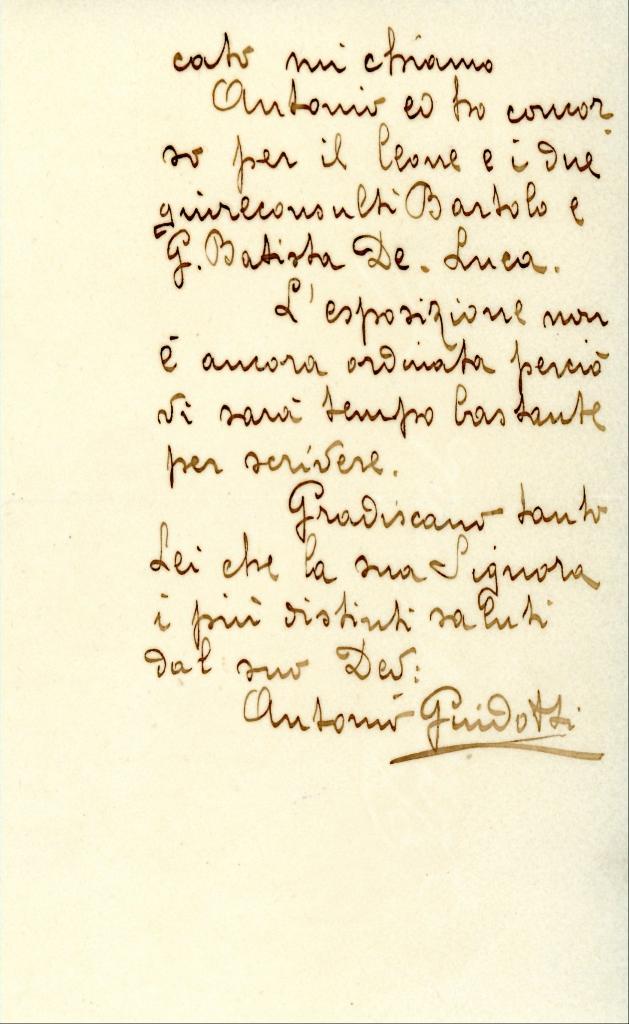 cato mi chiamo
Antonio ed ho concor-
so per il leone e i due
giureconsulti Bartolo e
G. Batista De. Luca.
L'esposizione non
è ancora ordinata perciò
vi sarà tempo bastante
per scrivere.
Gradiscano tanto
Lei che la sua Signora
i più distinti saluti
dal suo Dev:
Antonio Guidotti